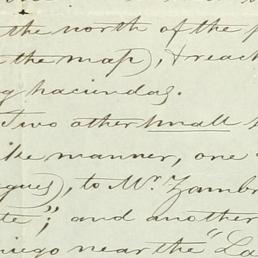 the north of the
the map), & reach
haciendas.
Two other small
like manner, one
to Mr. Zambr
te"; and another
near the "La